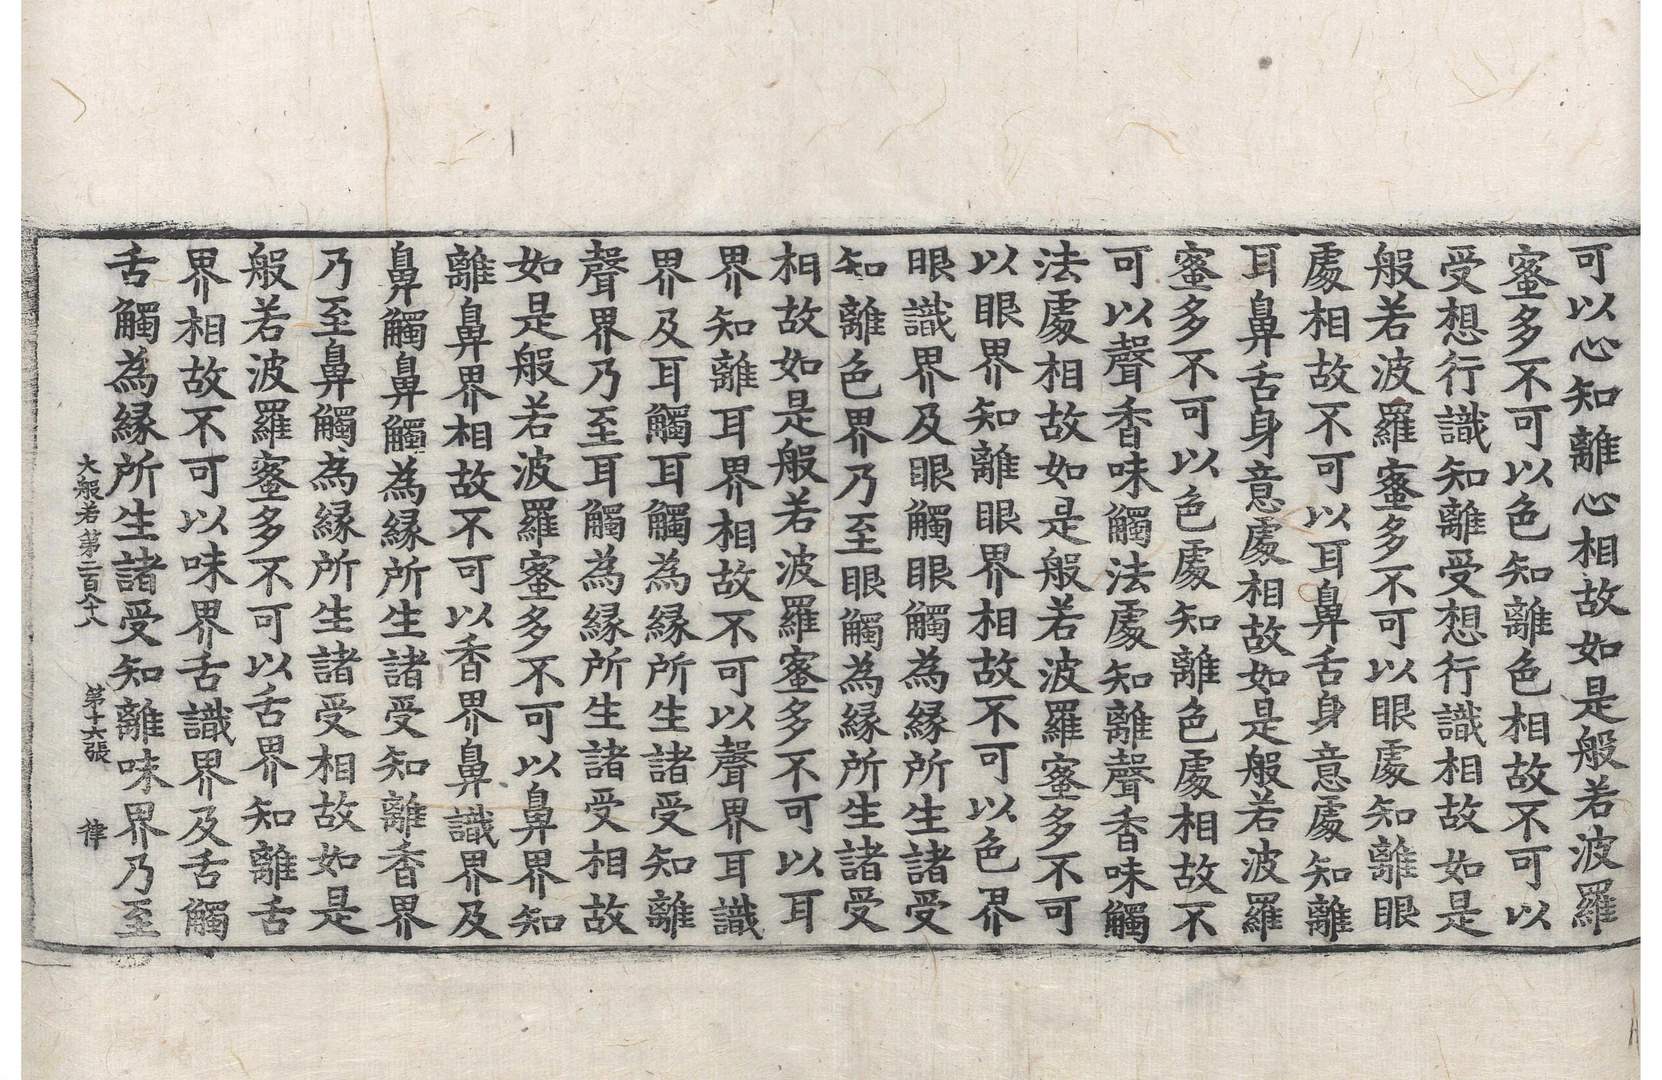 可以心知離心相故如是般若波羅
蜜多不可以色知離色相故不可以
受想行識知離受想行識相故如是
般若波羅蜜多不可以眼處知離眼
處相故不可以耳鼻舌身意處知離
耳鼻舌身意處相故如是般若波羅
蜜多不可以色處知離色處相故不
可以聲香味觸法處知離聲香味觸
法處相故如是般若波羅蜜多不可
以眼界知離眼界相故不可以色界
眼識界及眼觸眼觸為緣所生諸受
知離色界乃至眼觸為緣所生諸受
相故如是般若波羅蜜多不可以耳
界知離耳界相故不可以聲界耳識
界及耳觸耳觸為緣所生諸受知離
聲界乃至耳觸為緣所生諸受相故
如是般若波羅蜜多不可以鼻界知
離鼻界相故不可以香界鼻識界及
鼻觸鼻觸為緣所生諸受知離香界
乃至鼻觸為緣所生諸受相故如是
般若波羅蜜多不可以舌界知離舌
界相故不可以味界舌識界及舌觸
舌觸為緣所生諸受知離味界乃至
大般若第二百八十八 第十六張 律